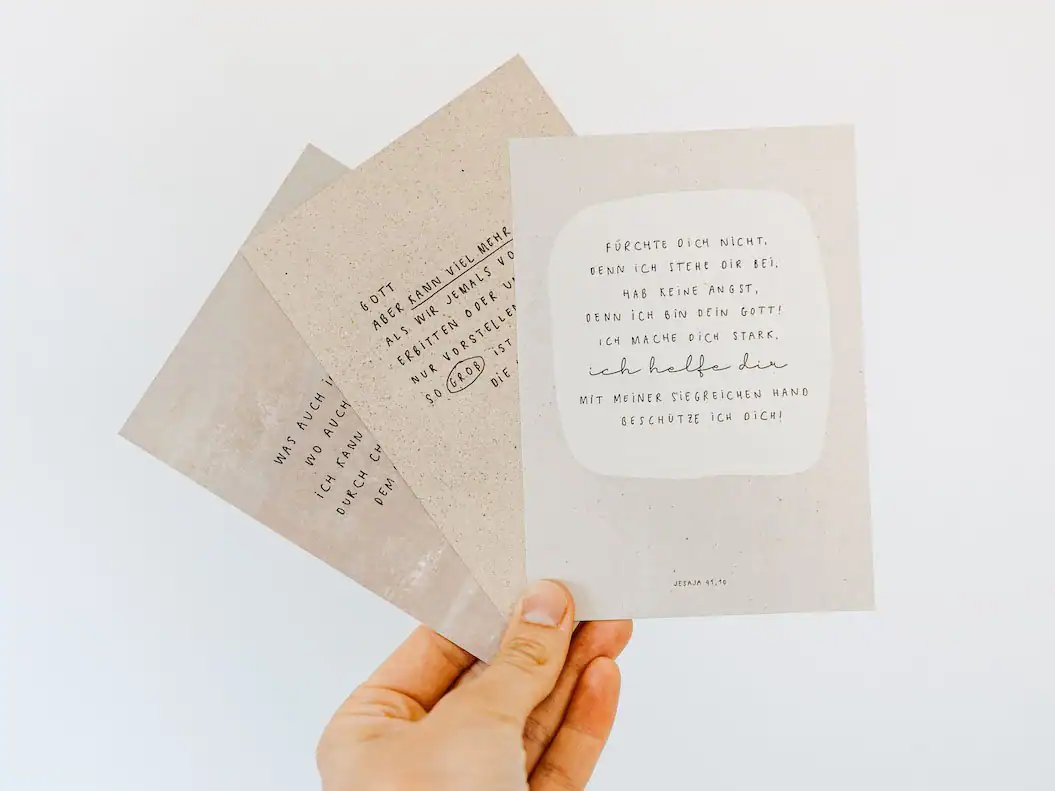 WAS AUCH
WO AUCH
ICH KANN
DURCH
DEM
GOTT
ABER KANN VIEL MEHR
ALS WIR JEMALS
ERBITTEN ODER
NUR VORSTELLEN
SO GROß IST
DIE
FÜRCHTE DICH NICHT,
DENN ICH STEHE DIR BEI,
HAB KEINE ANGST,
DENN ICH BIN DEIN GOTT!
ICH MACHE DICH STARK,
ich helfe dir
MIT MEINER SIEGREICHEN HAND
BESCHÜTZE ICH DICH!
JESAJA 41,10